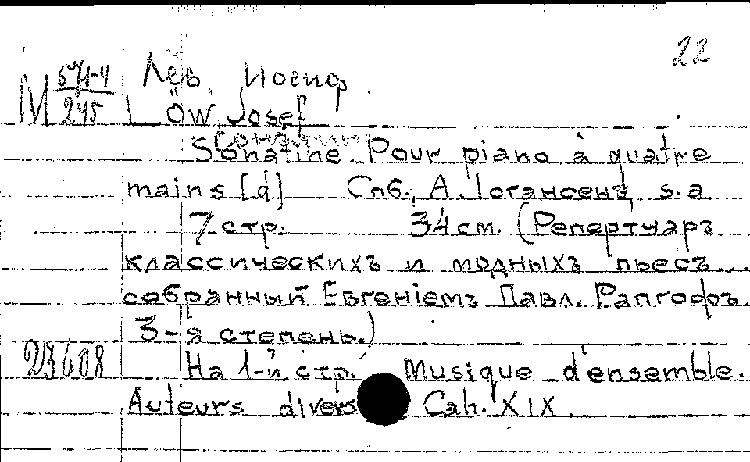 22
М 571-4/245 Лёв, Иосиф.
Löw Josef
Sonatine. Pour piano à quatre
mains [d] Спб., А. Іогансенъ, s.a
7 стр. 34 см. (Репертуаръ
классическихъ и модныхъ пьесъ
собранный Евгеніемъ Павл. Рапгофъ.
3-я степень.)
23608 На 1-й стр. Musique d'ensemble.
Auteurs divers Cah. XIX.